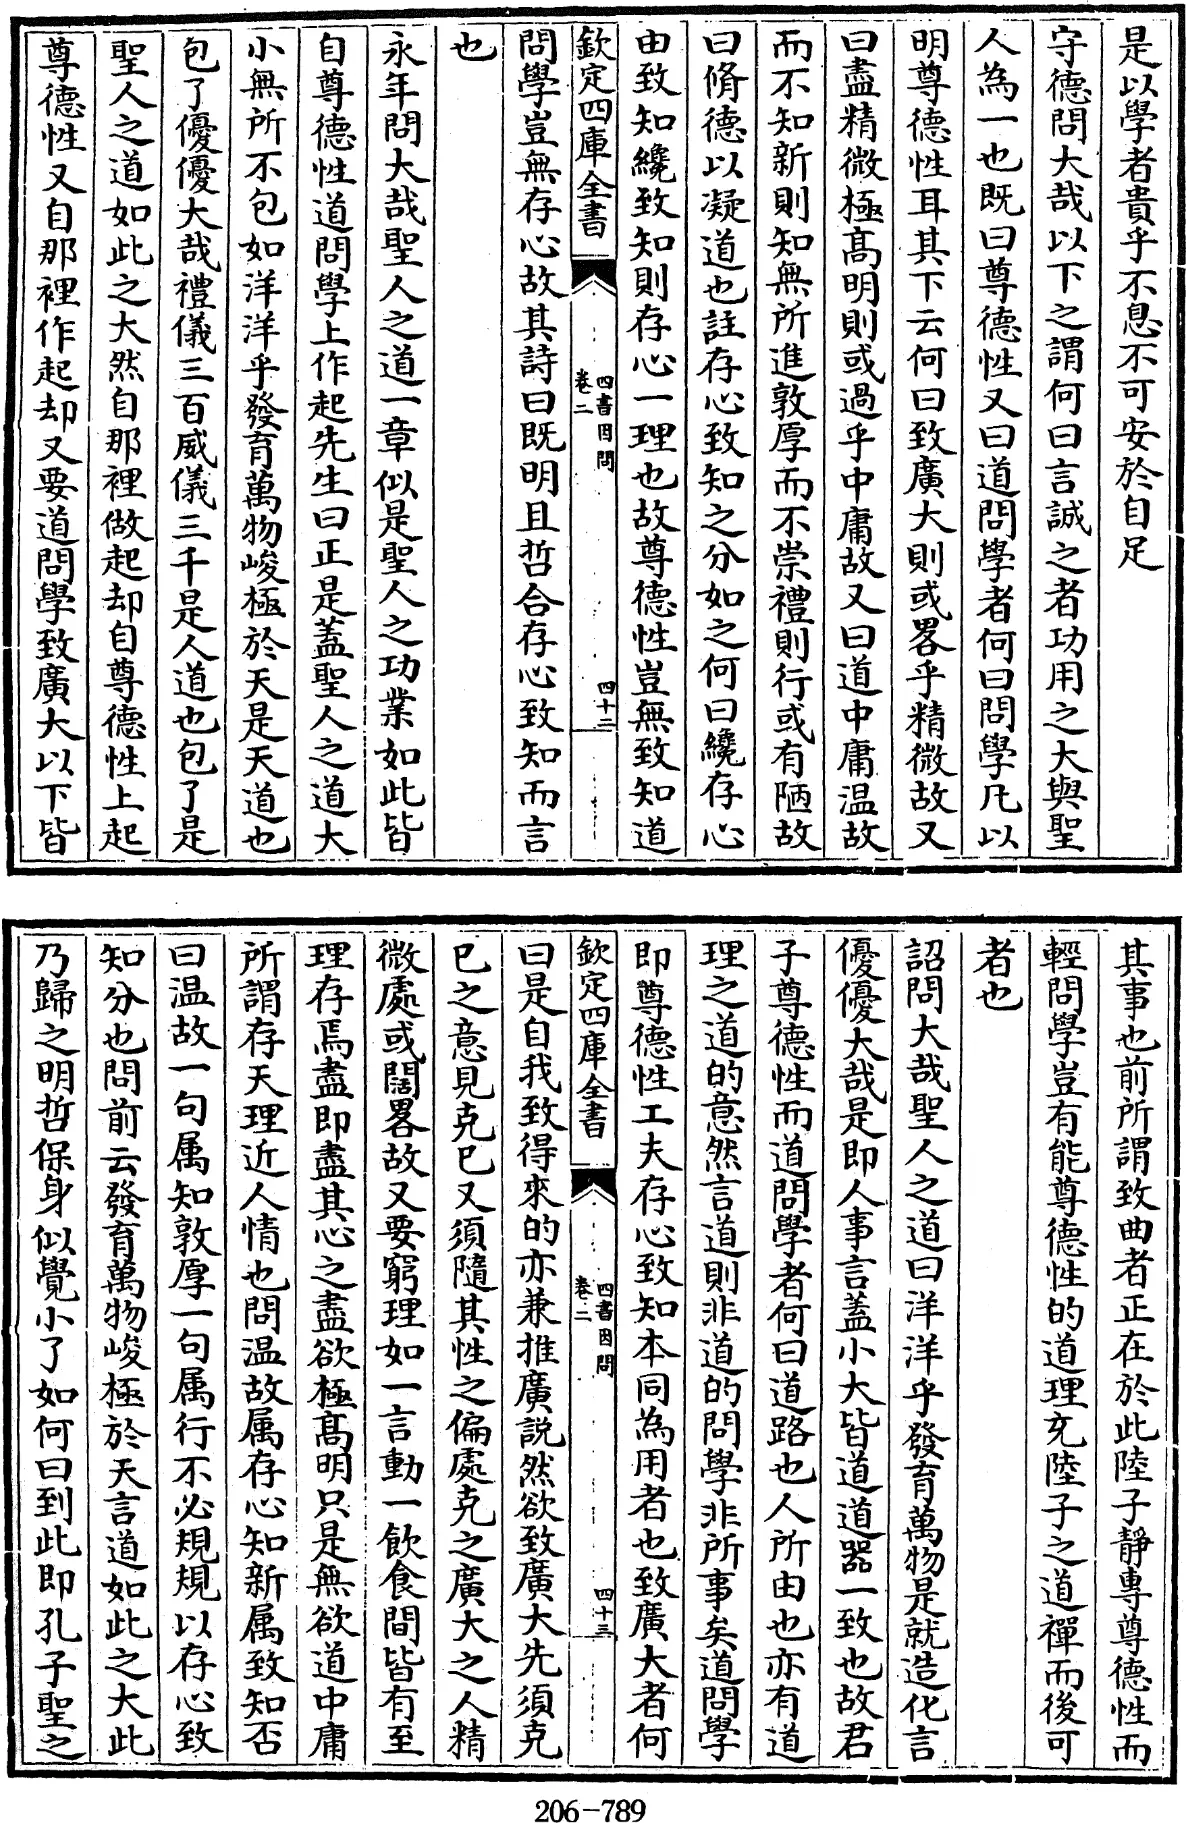 是以學者貴乎不息不可安於自足
守德問大哉以下之謂何曰言誠之者功用之大與聖
人為一也既曰尊德性又曰道問學者何曰問學凡以
明尊德性耳其下云何曰致廣大則或畧乎精微故又
曰盡精微極髙明則或過乎中庸故又曰道中庸温故
而不知新則知無所進敦厚而不崇禮則行或有陋故
曰脩德以凝道也註存心致知之分如之何曰纔存心
由致知纔致知則存心一理也故尊德性豈無致知道
欽定四庫全書
四書因問
卷二
四十二
問學豈無存心故其詩曰既明且哲合存心致知而言
也
永年問大哉聖人之道一章似是聖人之功業如此皆
自尊德性道問學上作起先生曰正是蓋聖人之道大
小無所不包如洋洋乎發育萬物峻極於天是天道也
包了優優大哉禮儀三百威儀三千是人道也包了是
聖人之道如此之大然自那裡做起却自尊德性上起
尊德性又自那裡作起却又要道問學致廣大以下皆
其事也前所謂致曲者正在於此陸子靜專尊德性而
輕問學豈有能尊德性的道理充陸子之道禪而後可
者也
詔問大哉聖人之道曰洋洋乎發育萬物是就造化言
優優大哉是即人事言蓋小大皆道道器一致也故君
子尊德性而道問學者何曰道路也人所由也亦有道
理之道的意然言道則非道的問學非所事矣道問學
即尊德性工夫存心致知本同為用者也致廣大者何
欽定四庫全書
四書因問
卷二
四十三
曰是自我致得來的亦兼推廣説然欲致廣大先須克
已之意見克已又須隨其性之偏處克之廣大之人精
微處或闊畧故又要窮理如一言動一飲食間皆有至
理存焉盡即盡其心之盡欲極髙明只是無欲道中庸
所謂存天理近人情也問温故属存心知新属致知否
曰温故一句属知敦厚一句属行不必規規以存心致
知分也問前云發育萬物峻極於天言道如此之大此
乃歸之明哲保身似覺小了如何曰到此即孔子聖之
206-789